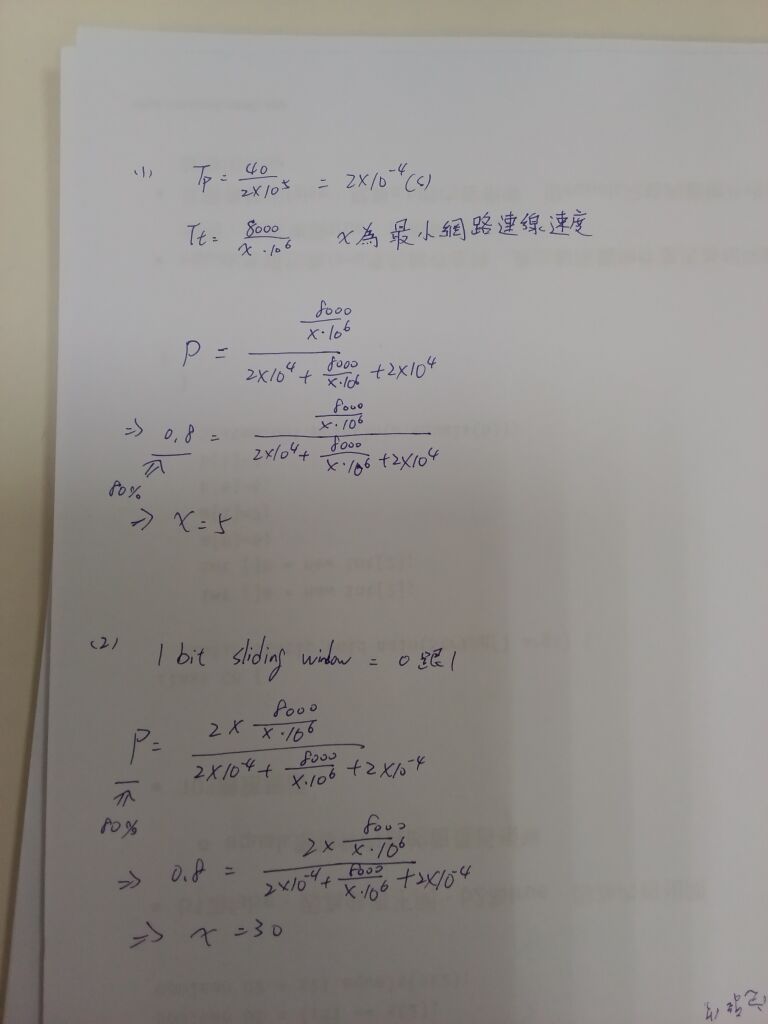 (1) Tp = 40/2×10^5 = 2×10^-4 (s)
Tt = 8000/x·10^6 x為最小網路連線速度
P = (8000/x·10^6)/(2×10^4 + 8000/x·10^6 + 2×10^4)
⇒ 0.8 = (8000/x·10^6)/(2×10^4 + 8000/x·10^6 + 2×10^4)
80%
⇒ x = 5
(2) 1 bit sliding window = 0跟1
P = (2 × 8000/x·10^6)/(2×10^-4 + 8000/x·10^6 + 2×10^-4)
80%
⇒ 0.8 = (2 × 8000/x·10^6)/(2×10^-4 + 8000/x·10^6 + 2×10^-4)
⇒ x = 30